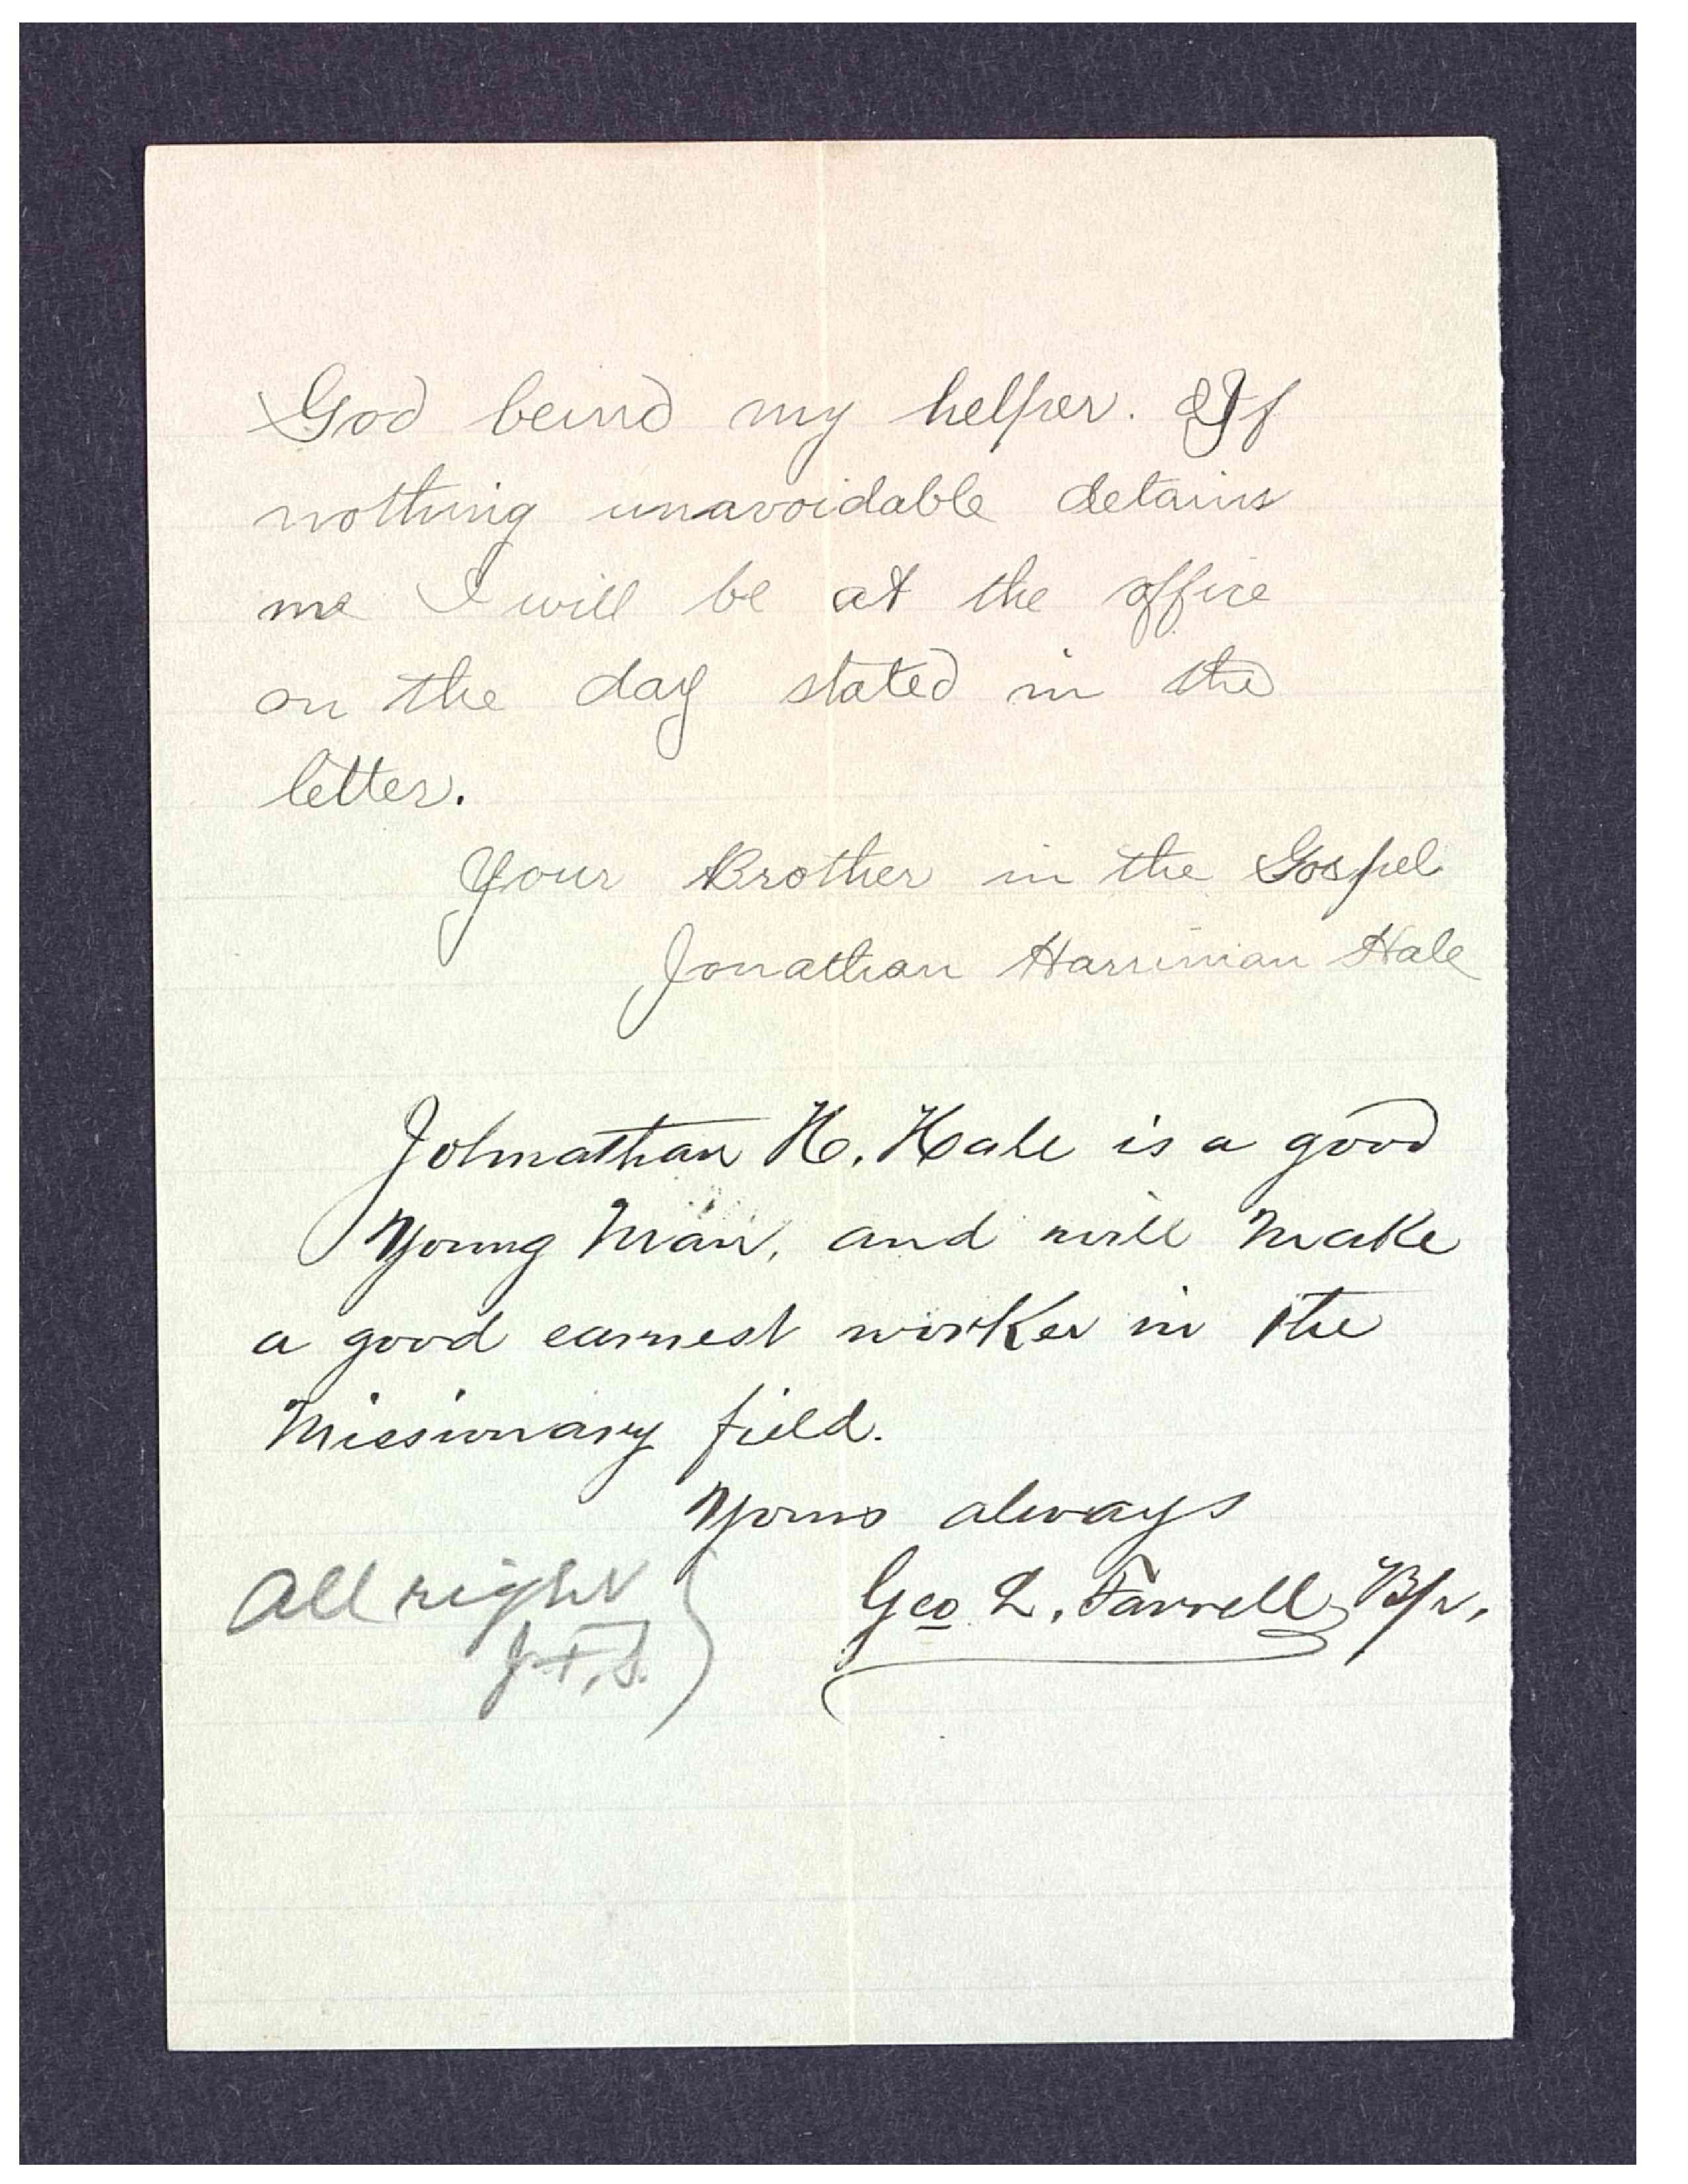 God beind my helper. If
nothing unavoidable detains
me I will be at the office
on the day stated in the
letter.
Your Brother in the Gospel
Jonathan Harriman Hale
Johnathan H. Hale is a good
Young Man, and will make
a good earnest worker in the
Missionary field.
Yours always
Geo L. Farrell Bp.
All right
J. F. S.